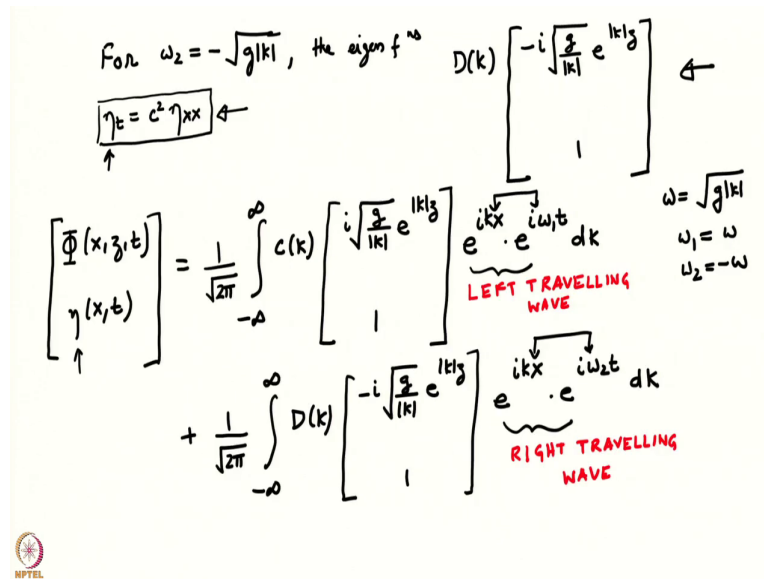 For ω₂ = -√g|k|, the eigen fⁿˢ D(k) [-i√(g/|k|) e^{|k|z} 1] ←
η_t = c² η_xx ←
↑
[Φ(x,z,t) η(x,t)] = 1/√2π ∫_{-∞}^{∞} C(k) [i√(g/|k|) e^{|k|z} 1] e^{ikx} · e^{iω₁t} dk
LEFT TRAVELLING
WAVE
ω = √g|k|
ω₁ = ω
ω₂ = -ω
+ 1/√2π ∫_{-∞}^{∞} D(k) [-i√(g/|k|) e^{|k|z} 1] e^{ikx} · e^{iω₂t} dk
RIGHT TRAVELLING
WAVE
NPTEL